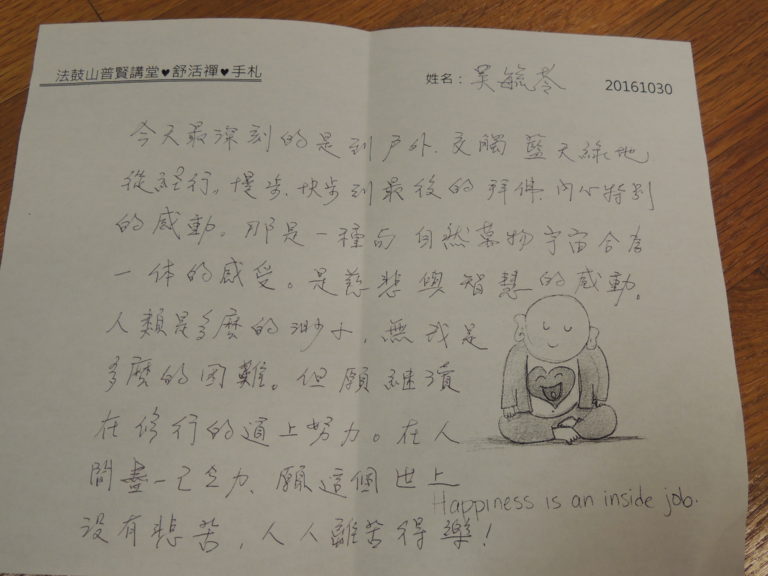 法鼓山普賢講堂♥舒活禪♥手札 姓名：吳毓苓 20161030
今天最深刻的是到戶外，交觸藍天綠地
從經行。慢步、快步到最後的拜佛，內心特別
的感動。那是一種與自然萬物宇宙合為
一体的感受。是慈悲與智慧的感動。
人類是多麼的渺小，無我是
多麼的困難。但願繼續
在修行的道上努力。在人
間盡一己之力，願這個世上
Happiness is an inside job.
沒有悲苦，人人離苦得樂！